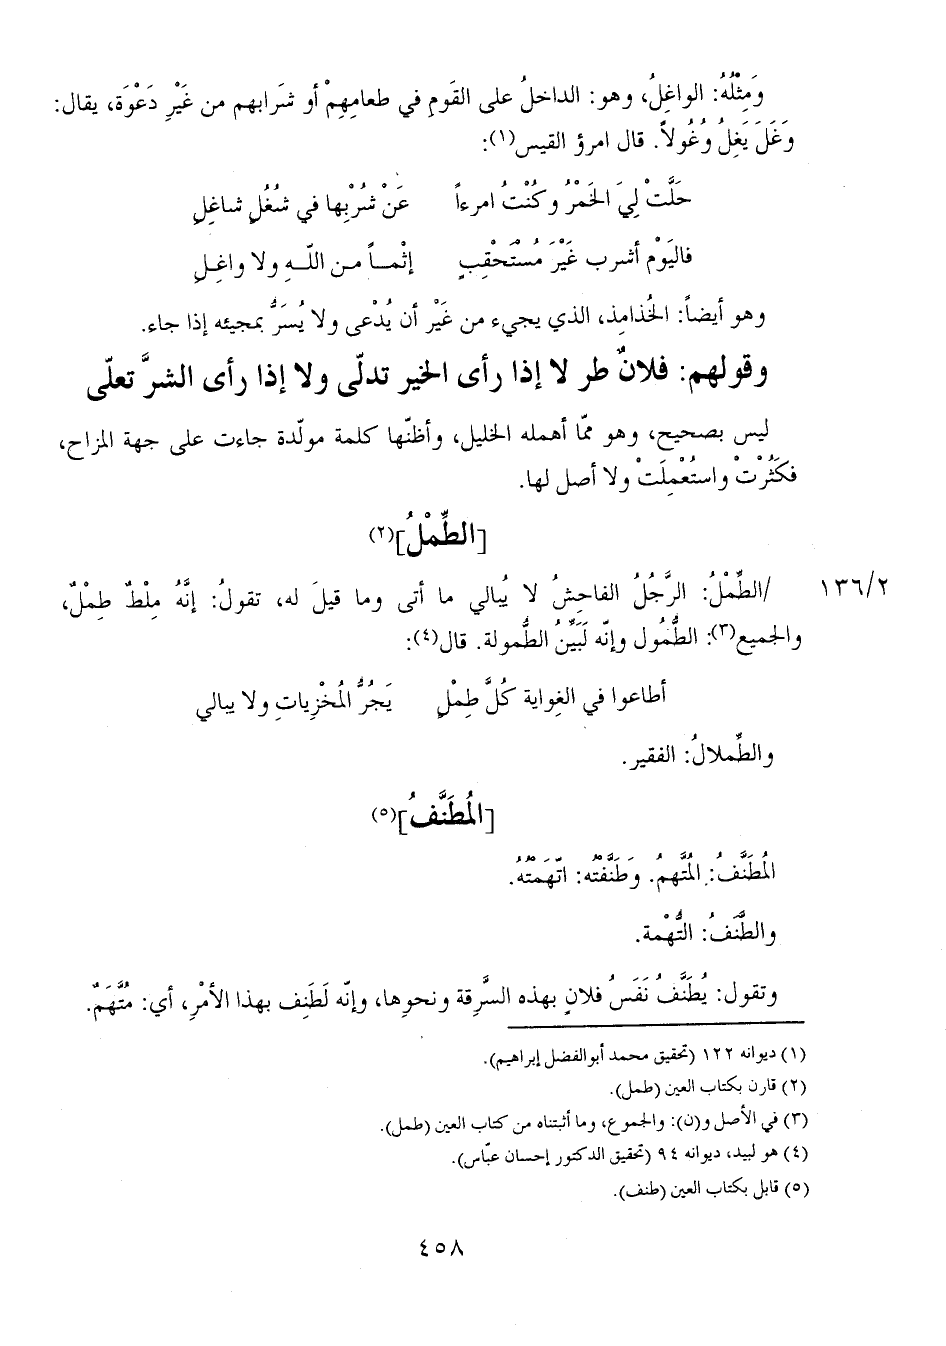 وَمِثْلُهُ: الواغِلُ، وهو: الداخلُ على القَومِ في طعامِهِمْ أو شَرابهم من غَيْرِ دَعْوَة، يقال:
وَغَلَ يَغِلُ وُغُولاً. قال امرؤ القيس(١):
حَلَّتْ لِيَ الخَمْرُ وكُنْتُ امرءاً عَنْ شُرْبِها في شُغُلٍ شاغِلِ
فاليَوْم أشرب غَيْرَ مُسْتَحْقِبٍ إثْمـاً مـن اللّـهِ ولا واغِـلِ
وهو أيضاً: الخُذامِذ، الذي يجيء من غَيْر أن يُدْعى ولا يُسَرُّ بمجيئه إذا جاء.
وقولهم: فلانٌ طر لا إذا رأى الخير تدلّى ولا إذا رأى الشرَّ تعلّى
ليس بصحيح، وهو ممّا أهمله الخليل، وأظنّها كلمة مولّدة جاءت على جهة المزاح،
فكَثُرْتْ واستُعْمِلَتْ ولا أصل لها.
[الطِّمْلُ](٢)
١٣٦/٢ /الطِّمْلُ: الرَّجُلُ الفاحِشُ لا يُبالي ما أتى وما قيلَ له، تقولُ: إنَّهُ مِلْطٌ طِمْلٌ،
والجميع(٣): الطُّمُول وإنّه لَبَيِّنُ الطُّمولة. قال(٤):
أطاعوا في الغِواية كُلَّ طِمْلٍ يَجُرُّ المُخْزِياتِ ولا يبالي
والطِّملالُ: الفقير.
[المُطَنَّفُ](٥)
المُطَنَّفُ: المُتَّهمُ. وَطَنَّفْتُه: اتّهَمْتُهُ.
والطَّنَفُ: التُّهْمة.
وتقول: يُطَنَّفُ نَفَسُ فلانٍ بهذه السَّرِقة ونحوِها، وإنّه لَطَنِف بهذا الأمْرِ، أي: مُتَّهَمٌ.
(١) ديوانه ١٢٢ (تحقيق محمد أبوالفضل إبراهيم).
(٢) قارن بكتاب العين (طمل).
(٣) في الأصل و(ن): والجموع، وما أثبتناه من كتاب العين (طمل).
(٤) هو لبيد، ديوانه ٩٤ (تحقيق الدكتور إحسان عبّاس).
(٥) قابل بكتاب العين (طنف).
٤٥٨